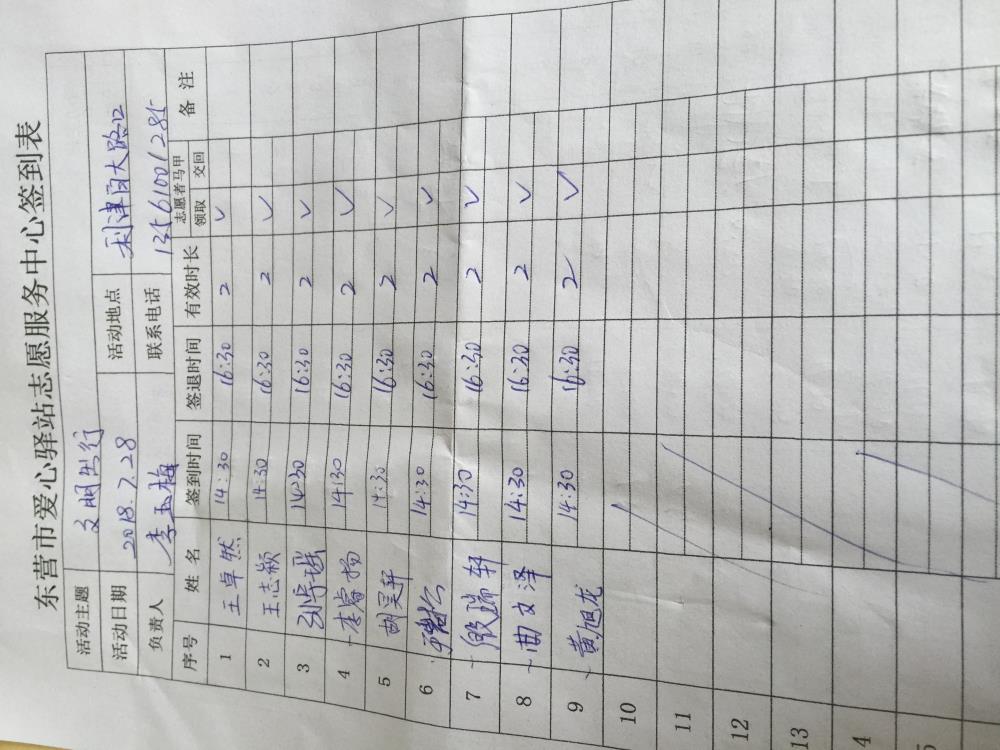 东营市爱心驿站志愿服务中心签到表
活动主题 文明出行
活动日期 2018.7.28 活动地点 利津百大路口
负责人 李玉梅 联系电话 13561001285
序号 姓名 签到时间 签退时间 有效时长 志愿者马甲 领取 交回 备注
1 王卓然 14:30 16:30 2 ✓
2 王志颖 14:30 16:30 2 ✓
3 14:30 16:30 2 ✓
4 李睿扬 14:30 16:30 2 ✓
5 胡昊轩 14:30 16:30 2 ✓
6 14:30 16:30 2 ✓
7 殷瑞轩 14:30 16:30 2 ✓
8 曲文泽 14:30 16:30 2 ✓
9 黄旭龙 14:30 16:30 2 ✓
10
11
12
13
4
5